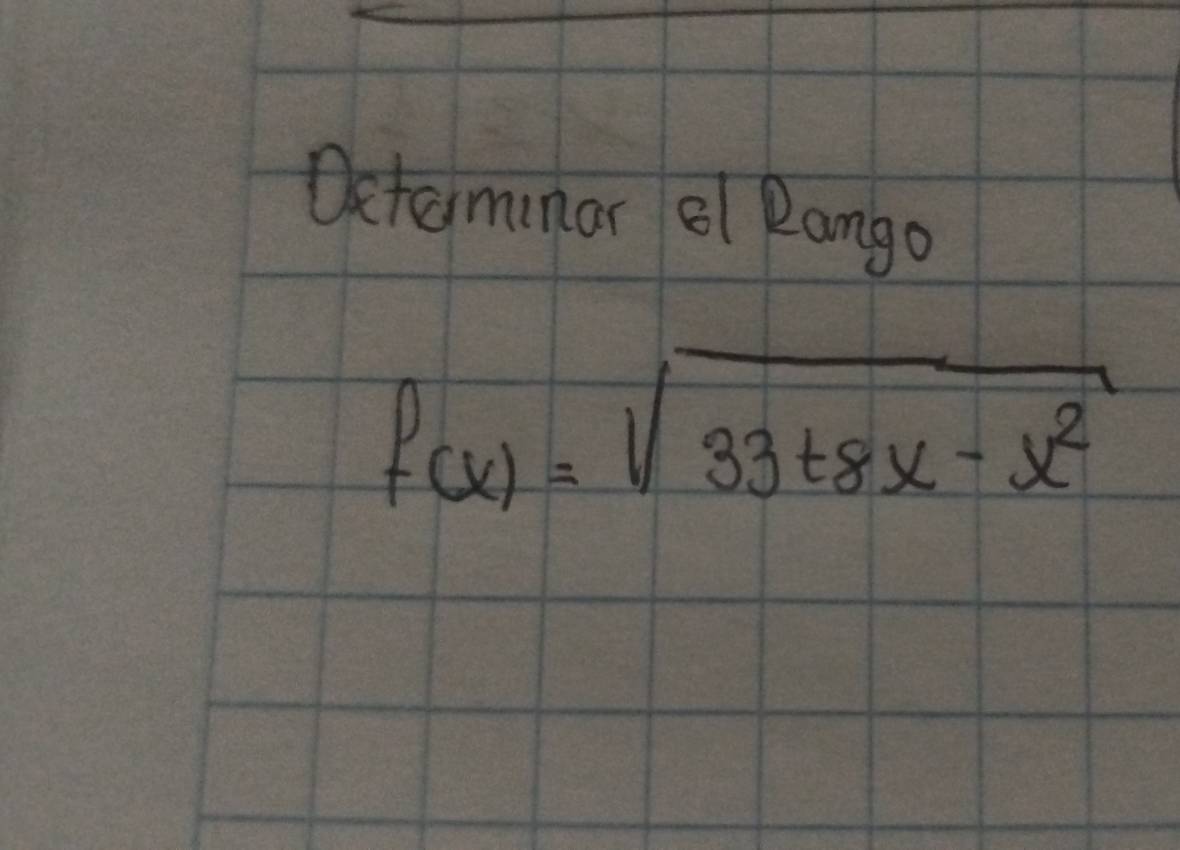 Determinar el Rango
f(x) = √33+8x - x²